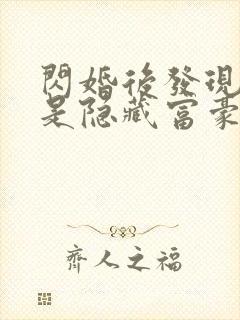 閃婚後發現
是隐藏富豪
齊人之福